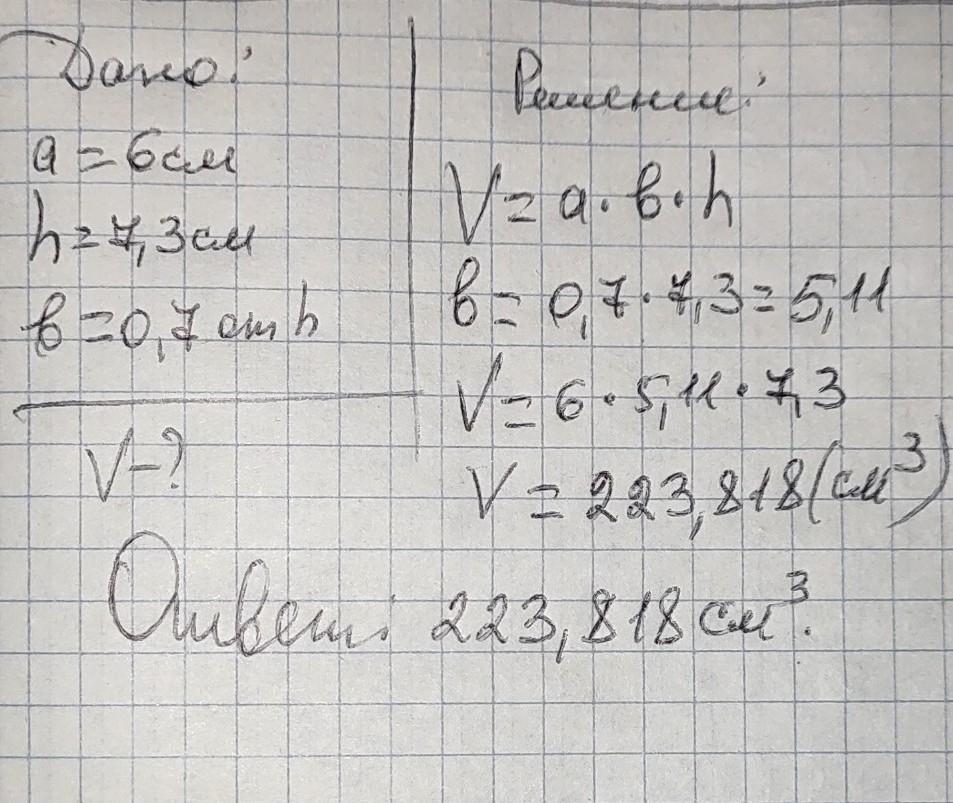 Дано:
a = 6см
h = 7,3см
b = 0,7 от h
V-?
Решение:
V = a · b · h
b = 0,7 · 7,3 = 5,11
V = 6 · 5,11 · 7,3
V = 223,818 (см³)
Ответ: 223,818 см³.